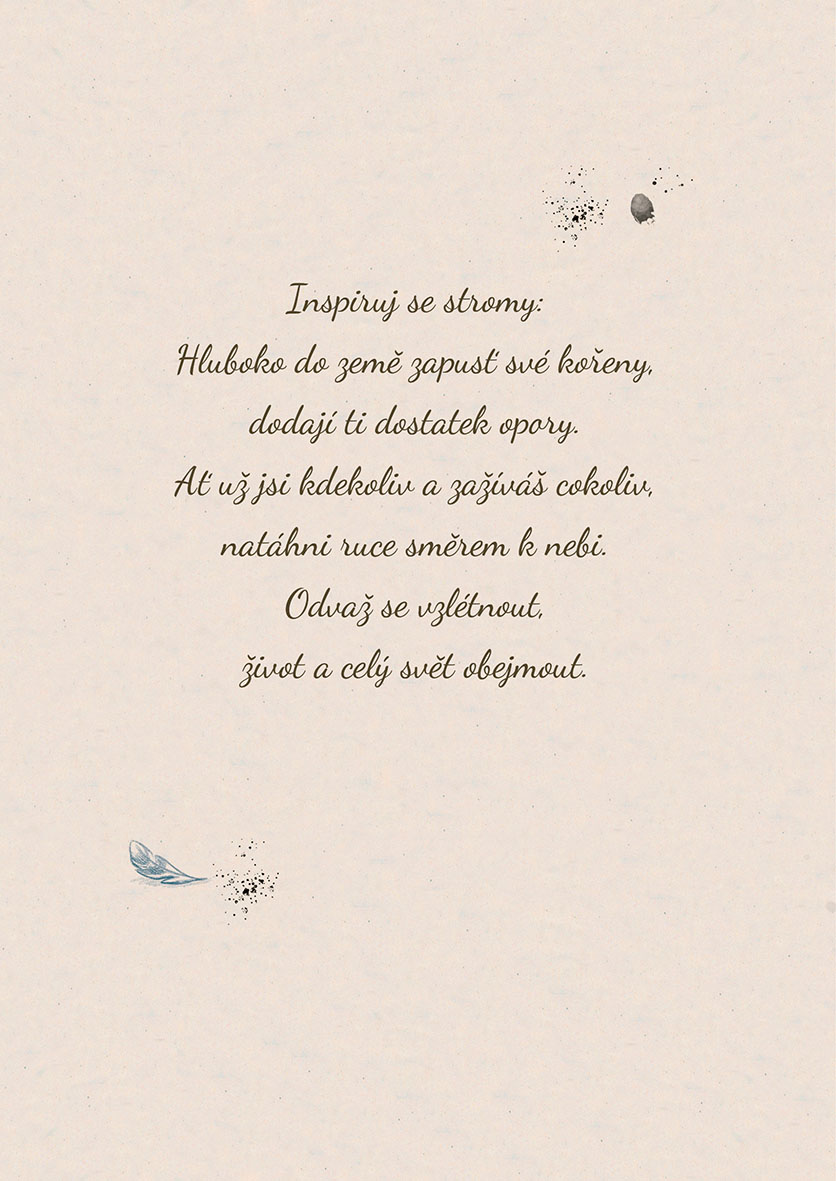 Inspiruj se stromy:
Hluboko do země zapusť své kořeny,
dodají ti dostatek opory.
Ať už jsi kdekoliv a zažíváš cokoliv,
natáhni ruce směrem k nebi.
Odvaž se vzlétnout,
život a celý svět obejmout.